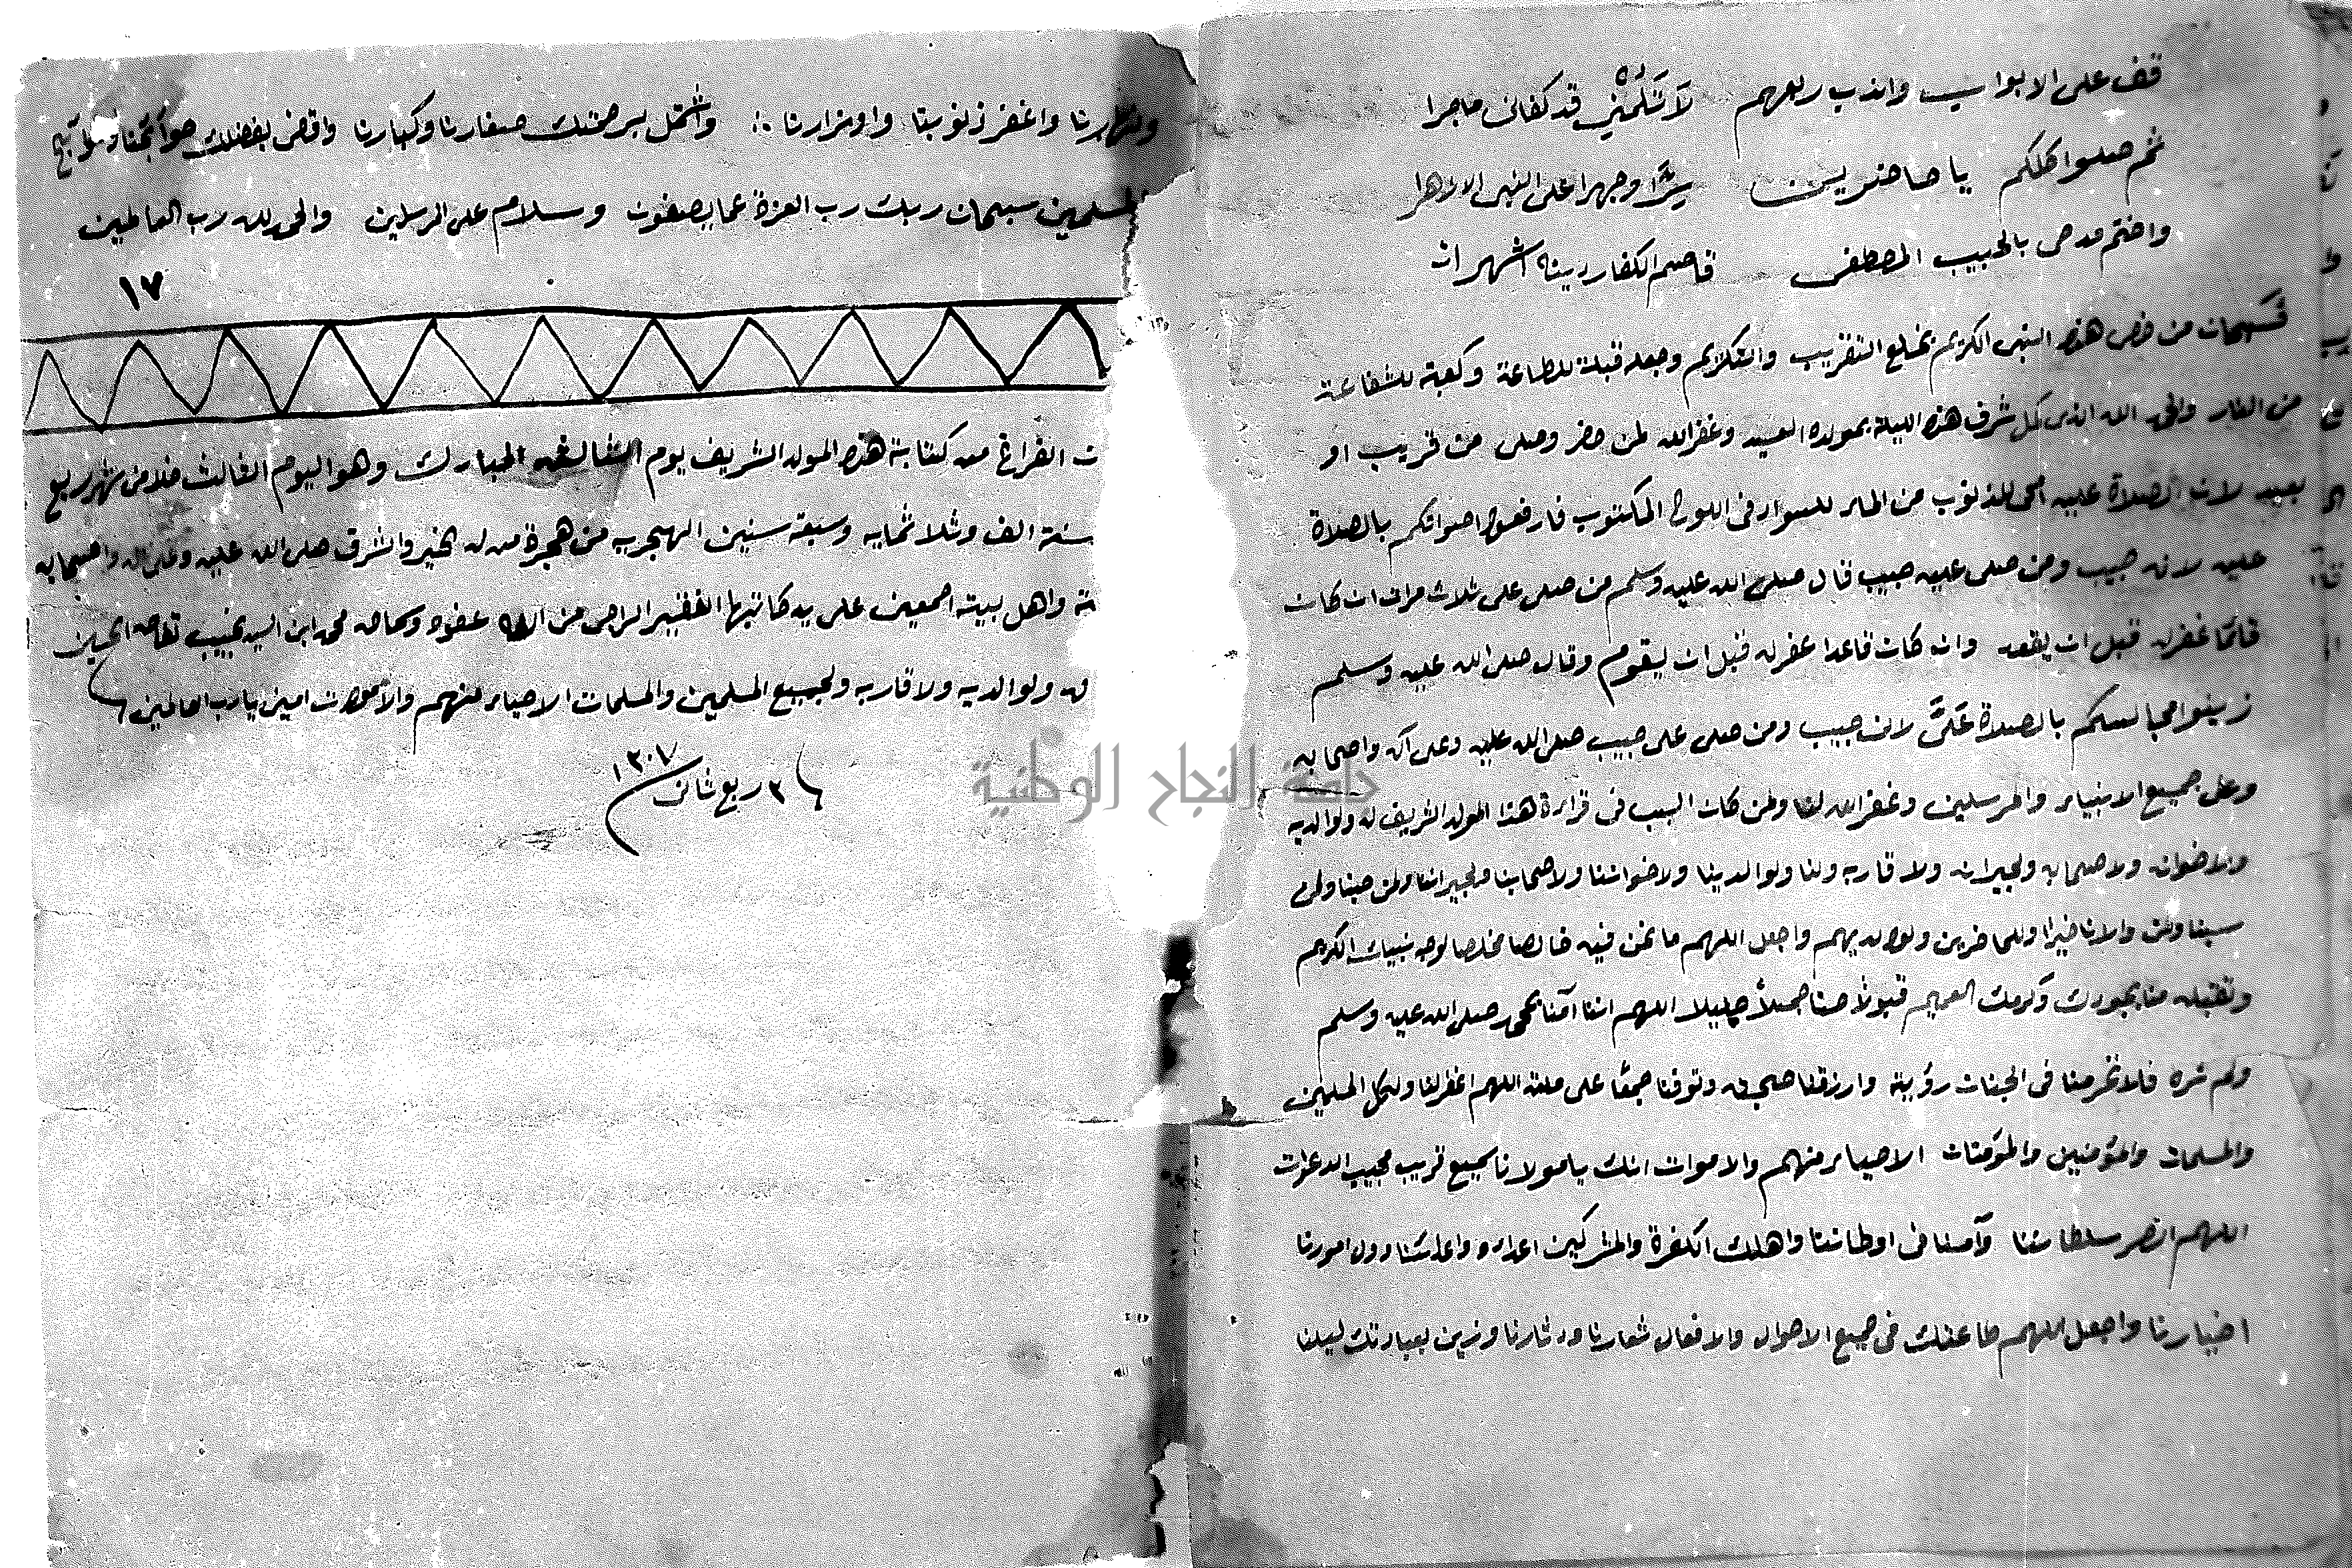 قف على الابواب واندب ربعهم لا تلمني قد كفاني ما جرا
ثم صلوا كلكم يا حاضرين سرًّا وجهرا على النبي الازهرا
واختم مدحي بالحبيب المصطفى قاصم الكفار دينه اشهرا
فسبحان من خص هذا النبي الكريم بخلع التقريب والتكريم وجعله قبلة للطاعة وكعبة للشفاعة
من النار والحمد الله الذي كمل شرف هذه الليلة بمولده السعيد وغفر الله لمن حضر وصلى من قريب او
بعيد لان الصلاة عليه امحى للذنوب من الماء للسواد في اللوح المكتوب فارفعوا اصواتكم بالصلاة
عليه لانه حبيب ومن صلى عليه حبيب قال صلى الله عليه وسلم من صلى على ثلاث مرات ان كان
قائما غفر له قبل ان يقعد وان كان قاعدا غفر له قبل ان يقوم وقال صلى الله عليه وسلم
زينوا مجالسكم بالصلاة عَلَيَّ لاني حبيب ومن صلى علي حبيب صلى الله عليه وعلى آله واصحابه
وعلى جميع الانبياء والمرسلين وغفر الله لنا ولمن كان السبب في قراءة هذا المولد الشريف له ولوالديه
ولاخوانه ولاصحابه ولجيرانه ولاقاربه ولنا ولوالدينا ولاخواننا ولاصحابنا ولجيراننا ولمن حبنا ولمن
سبنا ولمن والانا خيرا وللحاضرين ولوالديهم واجعل اللهم ما نحن فيه خالصا مخلصا لوجه نبيك الكريم
وتقبله منا بجودك وكرمك العميم قبولا حسنا جميلاً جليلا اللهم اننا آمنا بمحمد صلى الله عليه وسلم
ولم نره فلا تحرمنا في الجنان رؤيته وارزقنا صحبته وتوفنا جمعًا على ملته اللهم اغفر لنا ولكل المسلمين
والمسلمات والمؤمنين والمؤمنات الاحياء منهم والاموات انك يا مولانا سميع قريب مجيب الدعوات
اللهم انصر سلطاننا وآمنا في اوطاننا واهلك الكفرة والمشركين اعداءه واعدائنا وول امورنا
اخيارنا واجعل اللهم طاعتك في جميع الاحوال والافعال شعارنا ودثارنا وزين بعبادتك ليلنا
ونهارنا واغفر ذنوبنا واوزارنا وأشمل برحمتك صغارنا وكبارنا واقض بفضلك حوائجنا
المسلمين سبحان ربك رب العزة عما يصفون وسلام على المرسلين والحمد لله رب العالمين
١٧
الفراغ من كتابة هذه المولد الشريف يوم المبارك وهو اليوم الثالث خلا من شهر ربيع
سنة الف وثلاثمايه وسبعة سنين الهجريه من هجرة من له الخير والشرف صلى الله عليه وعلى اله واصحابه
واهل بيته اجمعين على يد كاتبها الفقير الراجي من الله عفوه وسماحه محمد ابن السيد نجيب
ولوالديه ولاقاربه ولجميع المسلمين والمسلمات الاحياء منهم والاموات امين يا رب العالمين
٣ ربيع ثاني ١٣٠٧
جامعة النجاح الوطنية